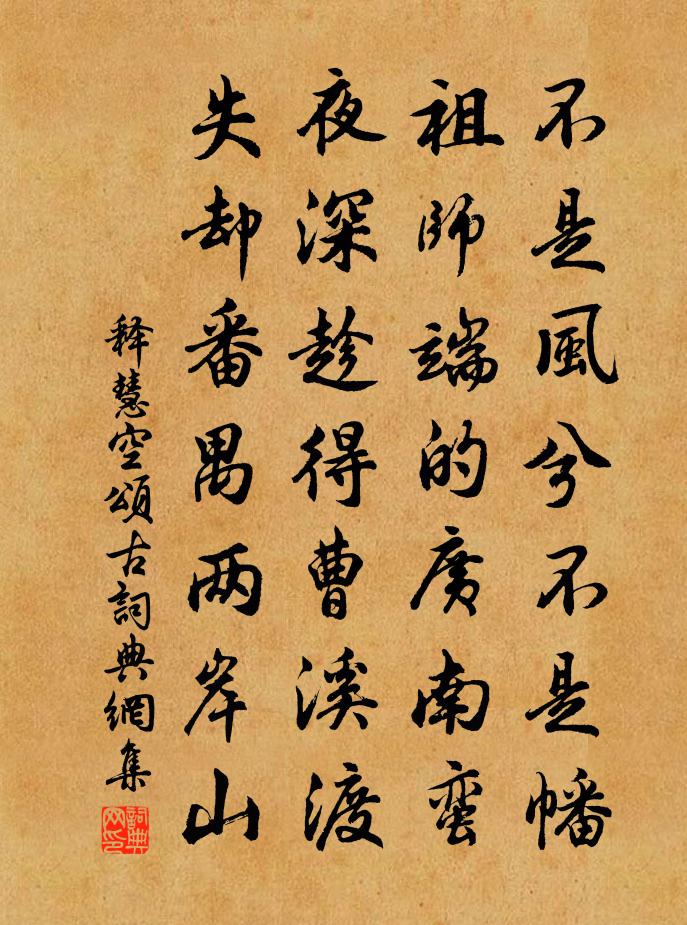 不是風兮不是幡
祖師端的廣南蛮
夜深趁得曹溪渡
失却番禺两岸山
释慧空頌古詞典網集
詞典网印